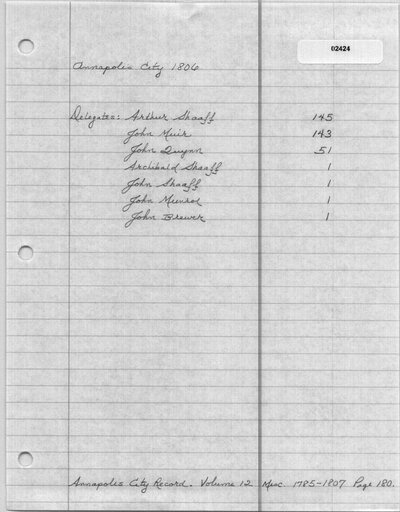 02424
Annapolis City 1806
Delegates: Arthur Shaaff 145
John Muir 143
John Quynn 51
Archibald Shaaff 1
John Shaaff 1
John Munroe 1
John Brewer 1
Annapolis City Record. Volume 12 Misc. 1785-1807 Page 180.